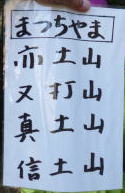 まつちやま
亦土山
又打山
真土山
信土山